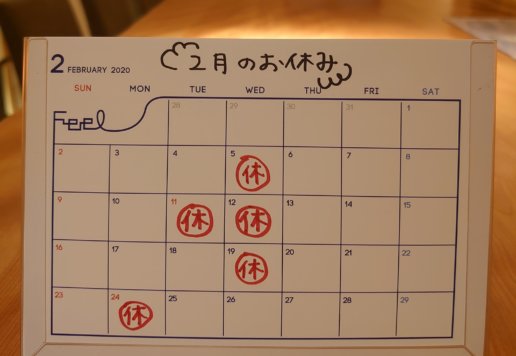 2月のお休み
2 FEBRUARY 2020
SUN MON TUE WED THU FRI SAT
Feel 28 29 30 31 1
2 3 4 5 休 6 7 8
9 10 11 休 12 休 13 14 15
16 17 18 19 休 20 21 22
23 24 休 25 26 27 28 29